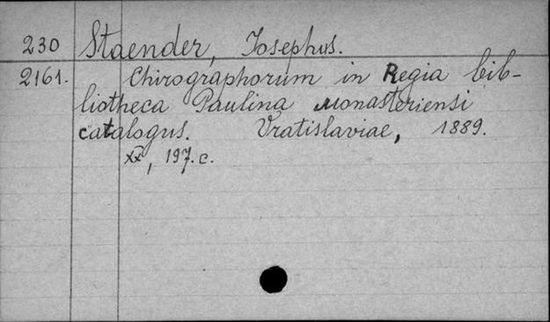 230 Staender, Josephus.
2161. Chirographorum in Regia bib-
liotheca Paulina Monasteriensi
catalogus. Vratislaviae, 1889.
XX, 197. c.